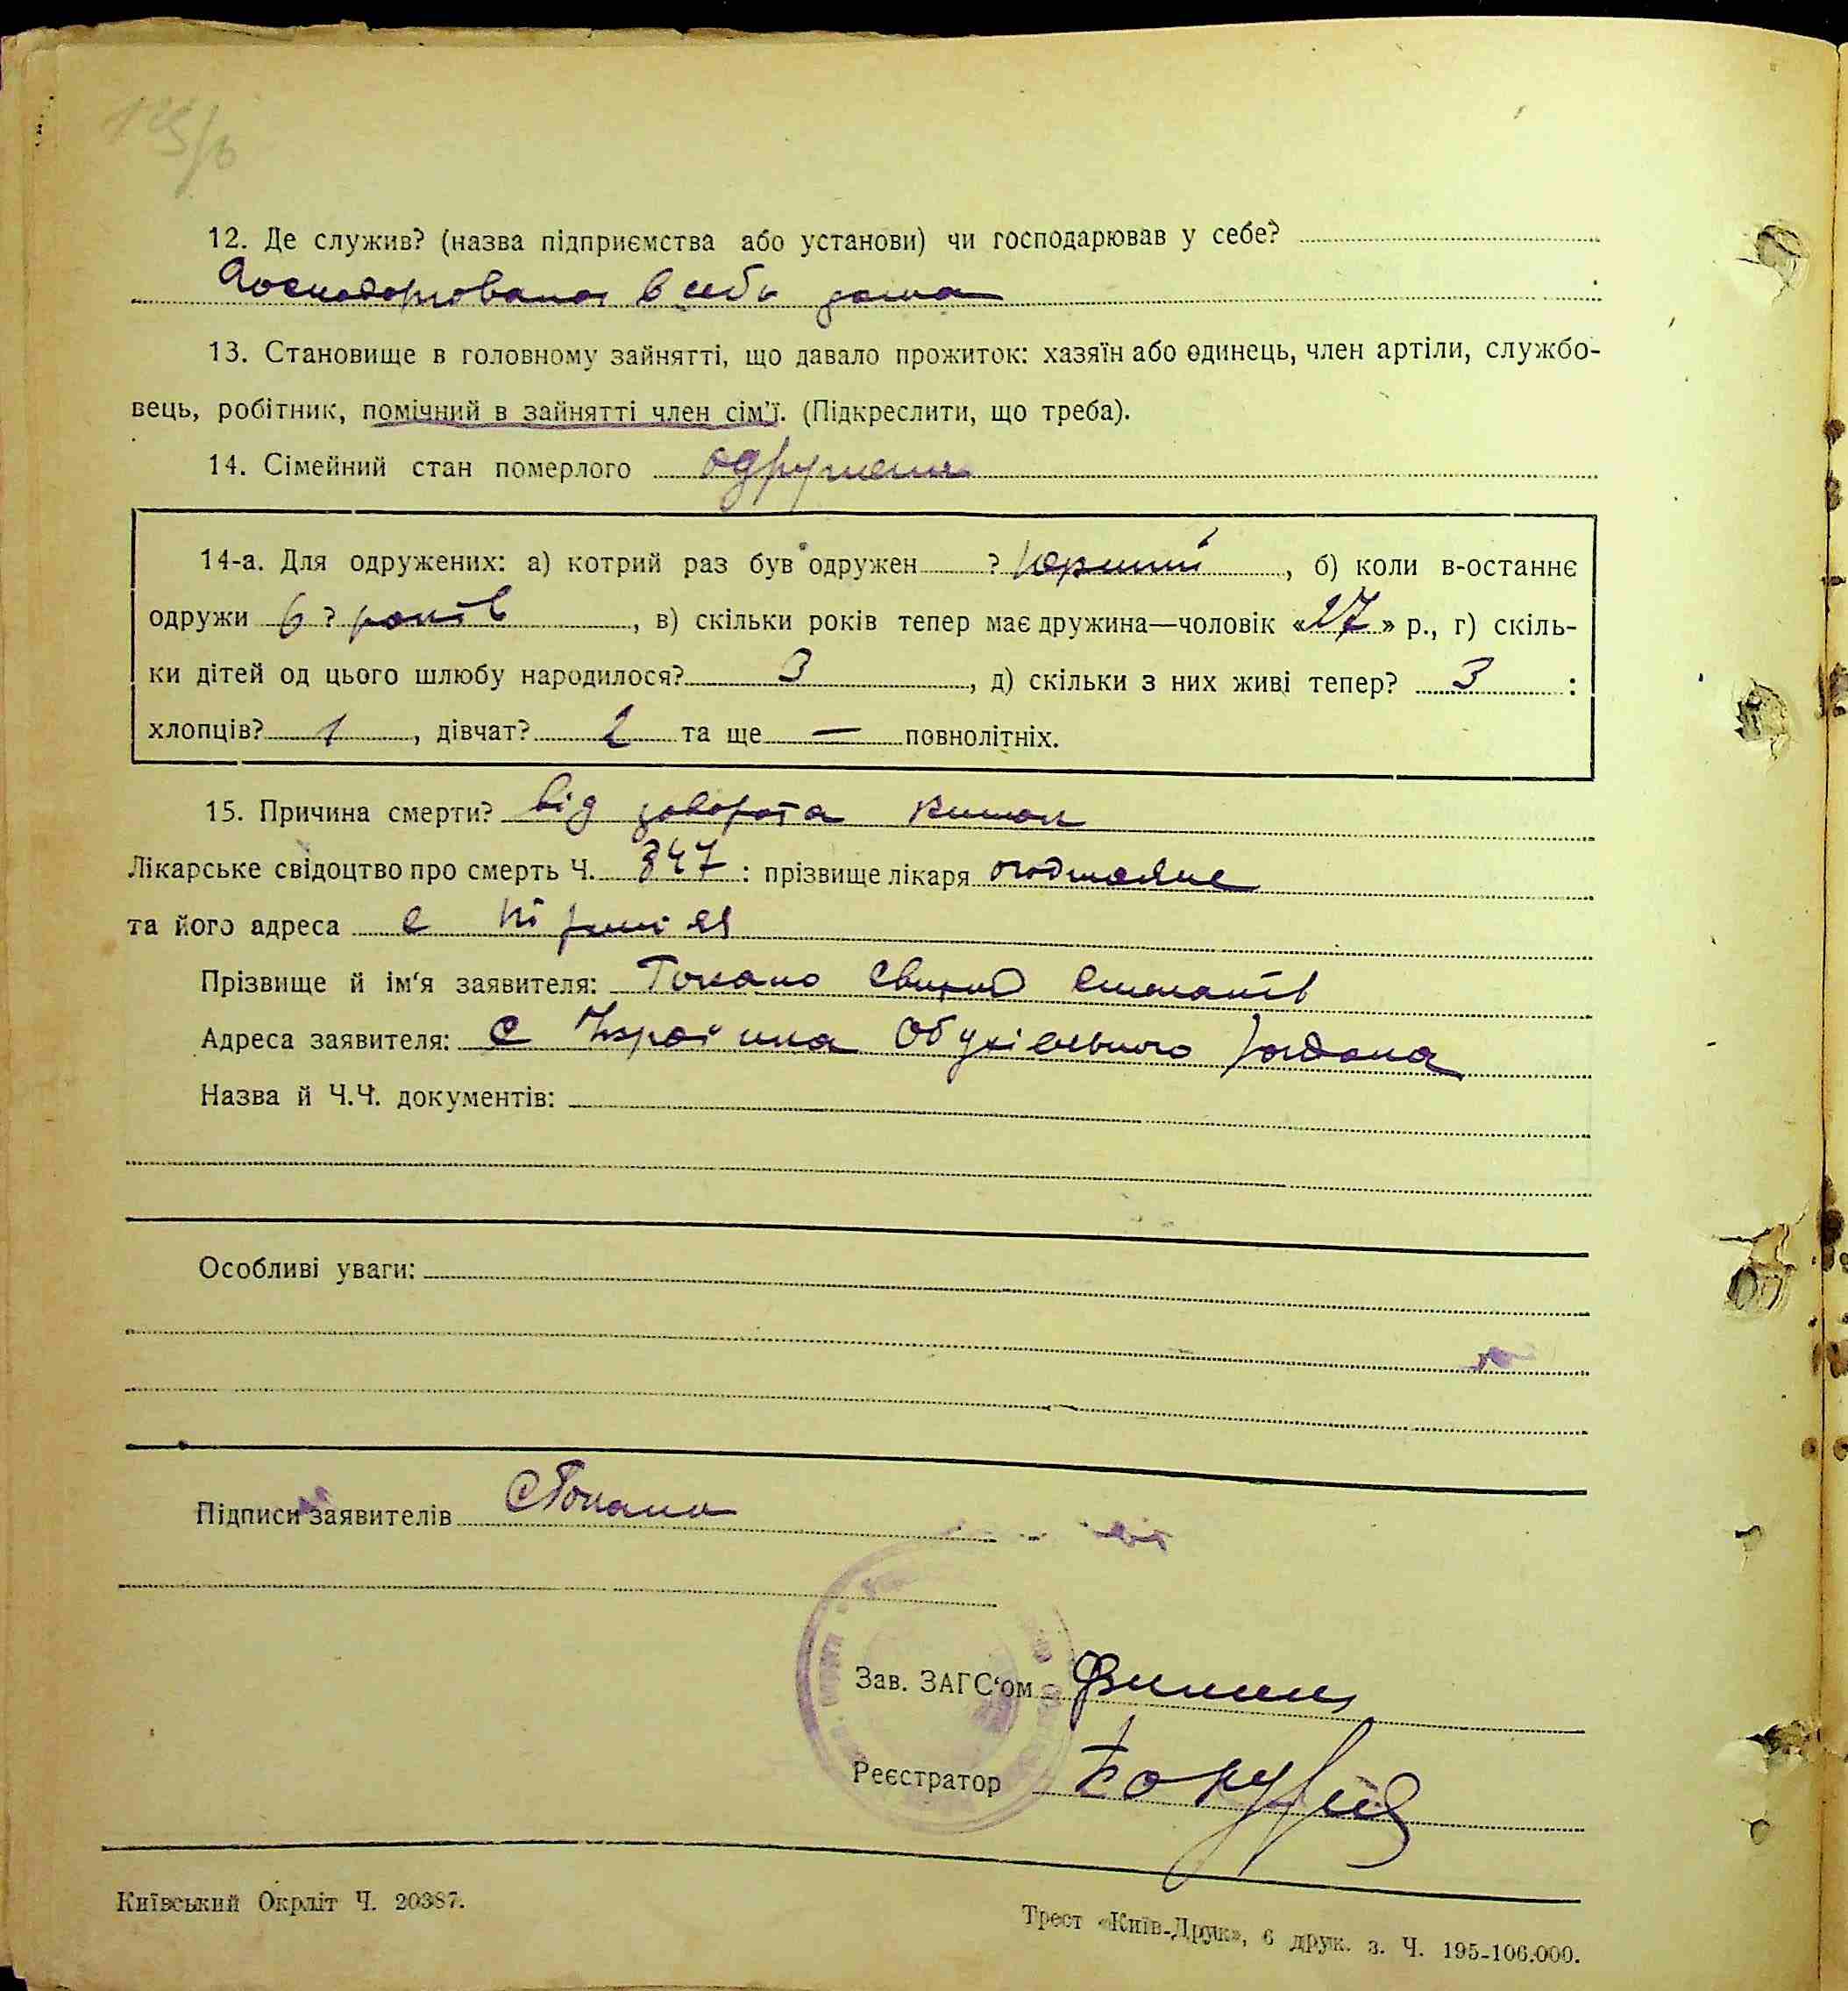 12. Де служив? (назва підприємства або установи) чи господарював у себе?
Господорювала в себе дома
13. Становище в головному зайнятті, що давало прожиток: хазяїн або одинець, член артіли, службо-
вець, робітник, помічний в зайнятті член сім'ї. (Підкреслити, що треба).
14. Сімейний стан померлого одружена
14-а. Для одружених: а) котрий раз був одружен ? перший, б) коли в-останнє
одружи 6 ? років, в) скільки років тепер має дружина—чоловік «27» р., г) скіль-
ки дітей од цього шлюбу народилося? 3, д) скільки з них живі тепер? 3 :
хлопців? 1, дівчат? 2 та ще — повнолітніх.
15. Причина смерти? від заворота кишок
Лікарське свідоцтво про смерть Ч. 847 : прізвище лікаря
та його адреса с
Прізвище й ім'я заявителя: Токано
Адреса заявителя: с Україпка Обухівського района
Назва й Ч.Ч. документів:
Особливі уваги:
Підписи заявителів СТокано
Зав. ЗАГС'ом
Реєстратор
Київський Окрліт Ч. 20387.
Трест «Київ-Друк», 6 друк. з. Ч. 195-106.000.